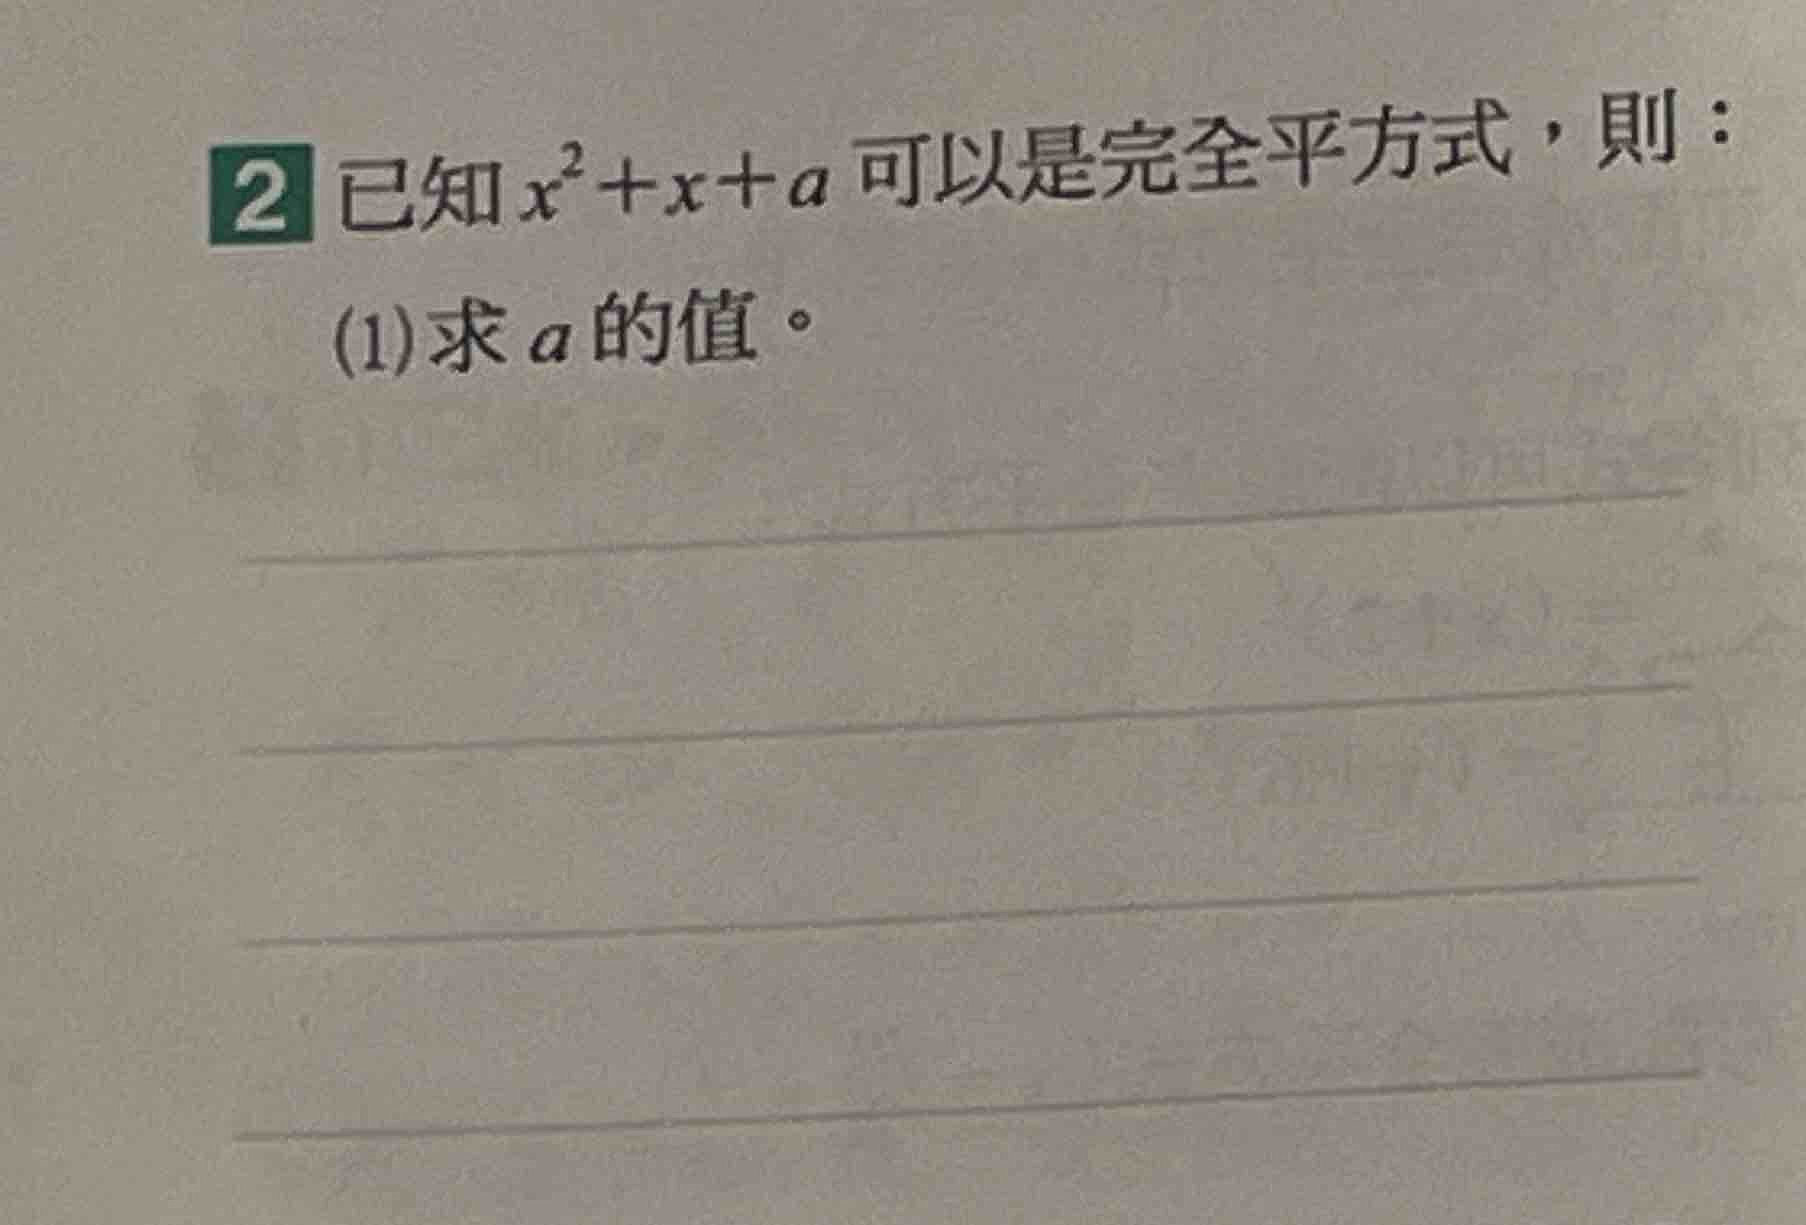 2 已知 x²+x+a 可以是完全平方式，則：
(1)求 a 的值。